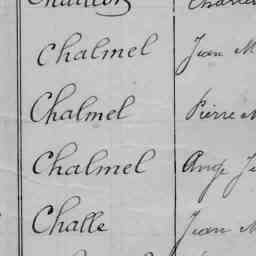 Chalmel Jean M
Chalmel Pierre M
Chalmel Ange Je
Challe Jean M